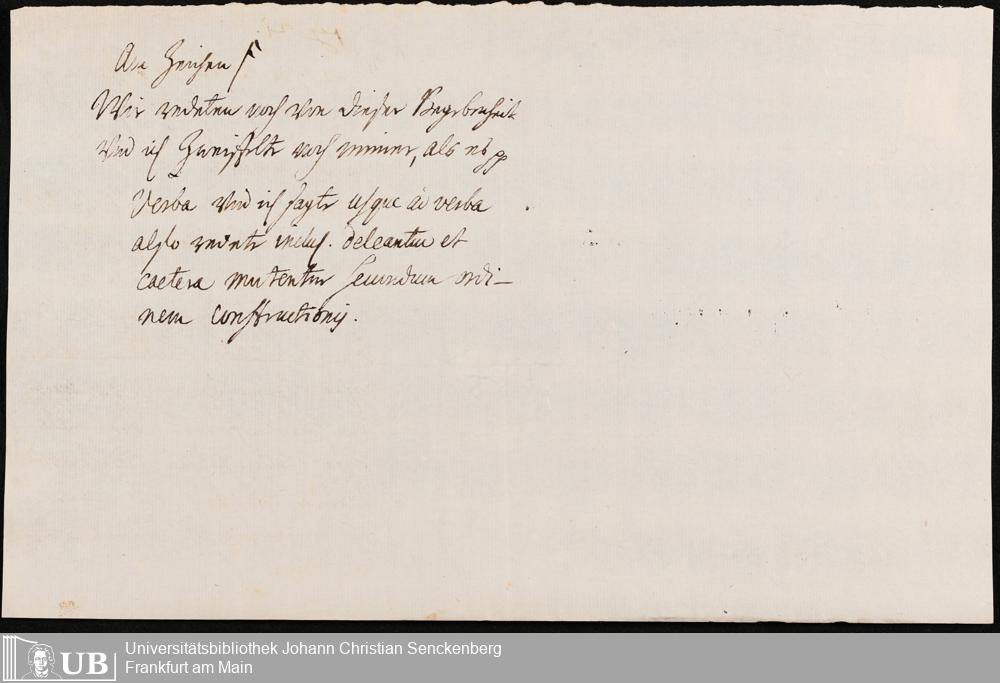 An Zeichen
Wir redeten noch von dieser Begebenheit
Und ich Zweiffelte noch immer, als es pp
Verba Und ich sagte usque ad verba
also redete inclus. deleantur et
caetera mutentur secundum ordi-
nem constructionis.
Universitätsbibliothek Johann Christian Senckenberg
Frankfurt am Main
UB